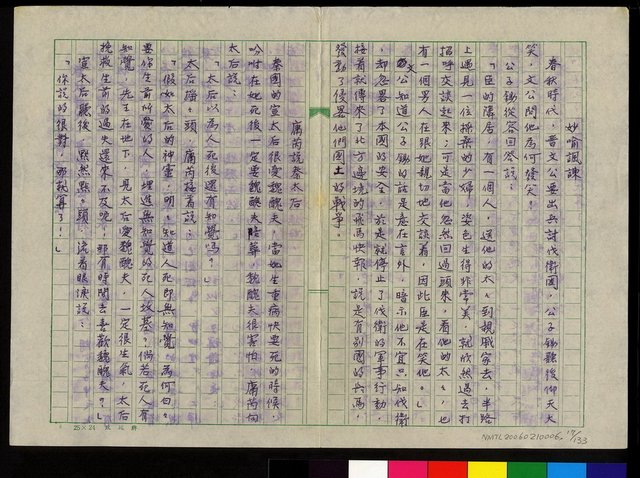 妙喻諷諫
春秋時代，晉文公要出兵討伐衛國，公子鋤聽後仰天大
笑，文公問他為何發笑？
公子鋤從容回答說：
「臣的隣居，有一個人，送他的太々到親戚家去，半路
上遇見一位採桑的少婦，姿色生得非常美，就欣然過去打
招呼交談起來；可是當他忽然回過頭來，看他的太々，也
有一個男人在跟她親切地交談着，因此臣是在笑他。」
文公知道公子鋤的話是意在言外，暗示他不宜只知伐衛
，却忽畧了本國的安全，於是就停止了伐衛的軍事行動，
接着就傳來了北方邊境的飛馬快報，說是有別國的兵馬，
發動了侵畧他們國土的戰爭。
庸芮說秦太后
秦國的宣太后很愛魏醜夫，當她生重病快要死的時候，
吩咐在她死後一定要魏醜夫陪葬，魏醜夫很害怕，庸芮向
太后說：
「太后以為人死後還有知覺嗎？」
太后搖々頭，庸芮接着說：
「假如太后的神靈，明々知道人死即無知覺，為何白々
要你生前所愛的人，埋進無知覺的死人坟墓？倘若死人有
知覺，先王在地下，見太后愛魏醜夫，一定很生氣，太后
挽救生前的過失還來不及呢，那有時間去喜歡魏醜夫？」
宣太后聽後，點點頭，流着眼淚說：
「你說的很對，那就算了！」
25×24
NMTL20060210006
17/133